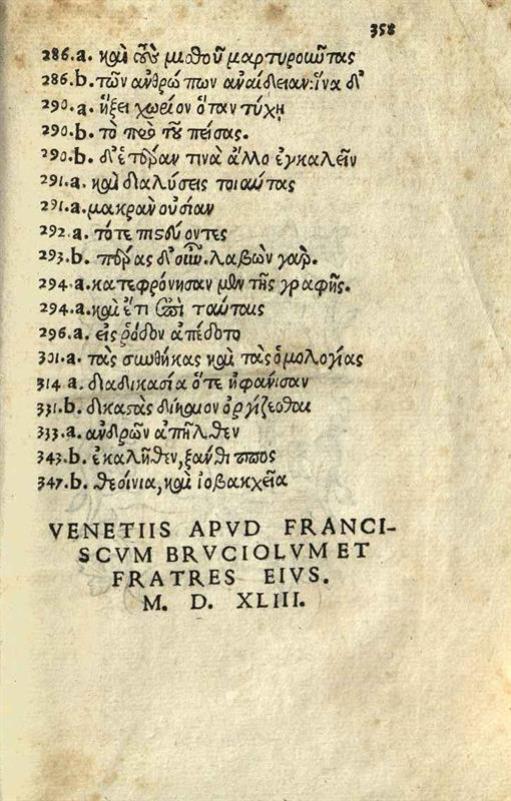 358
286.a. καὶ τοῦ μισθοῦ μαρτυροιῶτας
286.b. τῶν ἀνθρώπων ἀναίδειαν: ἵνα δι'
290.a. ἥξει χωρίον ὅταν τύχῃ
290.b. τὸ πρὸ τοῦ πείσας.
290.b. δι' ἑτέραν τινὰ ἄλλο ἐγκαλεῖν
291.a. καὶ διαλύσεις τοιαύτας
291.a. μακρὰν οὐσίαν
292.a. τότε πιστεύοντες
293.b. πέρας δ' οὖν. λαβὼν γὰρ.
294.a. κατεφρόνησαν μὲν τῆς γραφῆς.
294.a. καὶ ἔτι ἐπὶ ταύταις
296.a. εἰς ῥόδον ἀπέδοτο
301.a. τὰς συνθήκας καὶ τὰς ὁμολογίας
314 a. διαδικασία ὅτε ἠφάνισαν
331.b. δικαστὰς δίκαιον ὀργίζεσθαι
333.a. ἀνδρῶν ἀπῆλθεν
343.b. ἐκαλῆθεν, ξάνθιππος
347.b. θεοίνια, καὶ ἰοβακχεῖα
VENETIIS APVD FRANCI-
SCVM BRVCIOLVM ET
FRATRES EIVS.
M. D. XLIII.